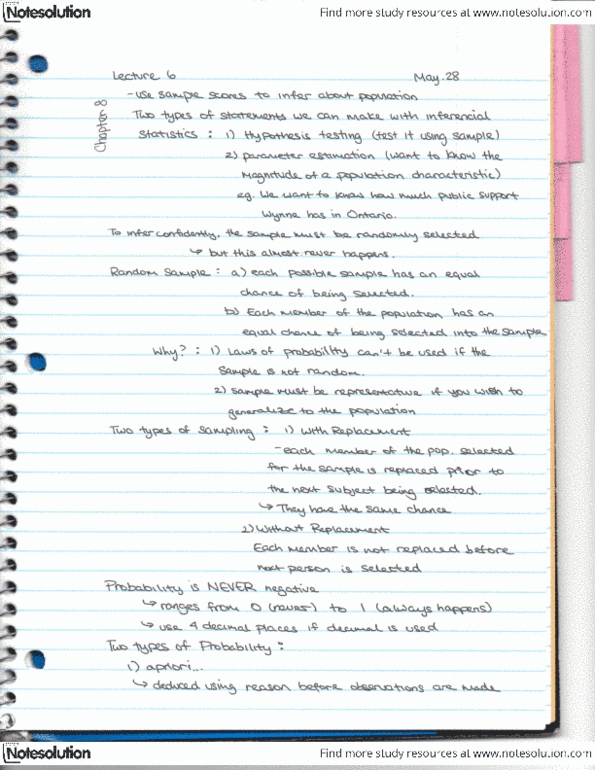 Notesolution
Find more study resources at www.notesolution.com
Lecture 6 May. 28
Chapter 8
- use sample scores to infer about population
Two types of statements we can make with inferencial
Statistics : 1) Hypothesis testing (test it using sample)
2) parameter estimation (want to know the
Magnitude of a population characteristic)
eg. We want to know how much public support
Wynne has in Ontario.
To infer confidently, the sample must be randomly selected
↳ but this almost never happens.
Random Sample : a) each possible sample has an equal
chance of being selected.
b) Each member of the population has an
equal chance of being selected into the sample
Why? : 1) Laws of probability can't be used if the
sample is not random.
2) sample must be representative if you wish to
generalize to the population
Two types of Sampling : 1) With Replacement
- each member of the pop. selected
for the sample is replaced prior to
the next subject being selected.
↳ They have the same chance
2) Without Replacement
Each member is not replaced before
next person is selected
Probability is NEVER negative
↳ ranges from 0 (never) to 1 (always happens)
↳ use 4 decimal places if decimal is used
Two types of Probability :
1) apriori...
↳ deduced using reason before observations are made
Notesolution
Find more study resources at www.notesolution.com